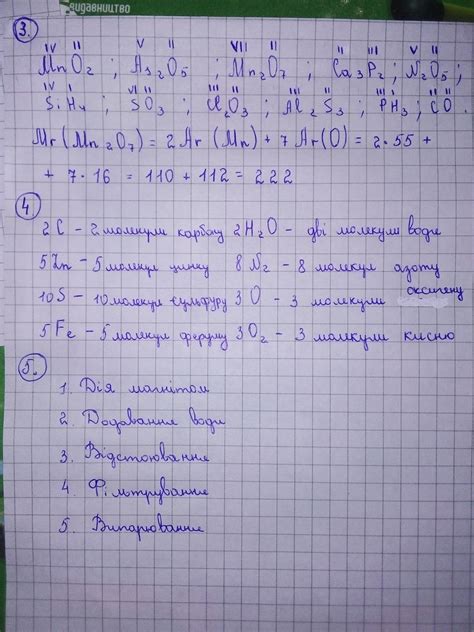 видавництво
3.
IV II V II VII II II III V II
MnO2 ; As2O5 ; Mn2O7 ; Ca3P2 ; N2O5 ;
IV I VI II III II III II III I II II
SiH4 ; SO3 ; Cl2O3 ; Al2S3 ; PH3 ; CO.
Mr(Mn2O7) = 2Ar(Mn) + 7Ar(O) = 2·55 +
+ 7·16 = 110 + 112 = 222
4
2C – 2 молекули карбону 2H2O – дві молекули води
5Zn – 5 молекул цинку 8N2 – 8 молекул азоту
10S – 10 молекул сульфуру 3O – 3 молекули оксигену
5Fe – 5 молекул феруму 3O2 – 3 молекули кисню
5.
1. Дія магнітом
2. Додавання води
3. Відстоювання
4. Фільтрування
5. Випарювання